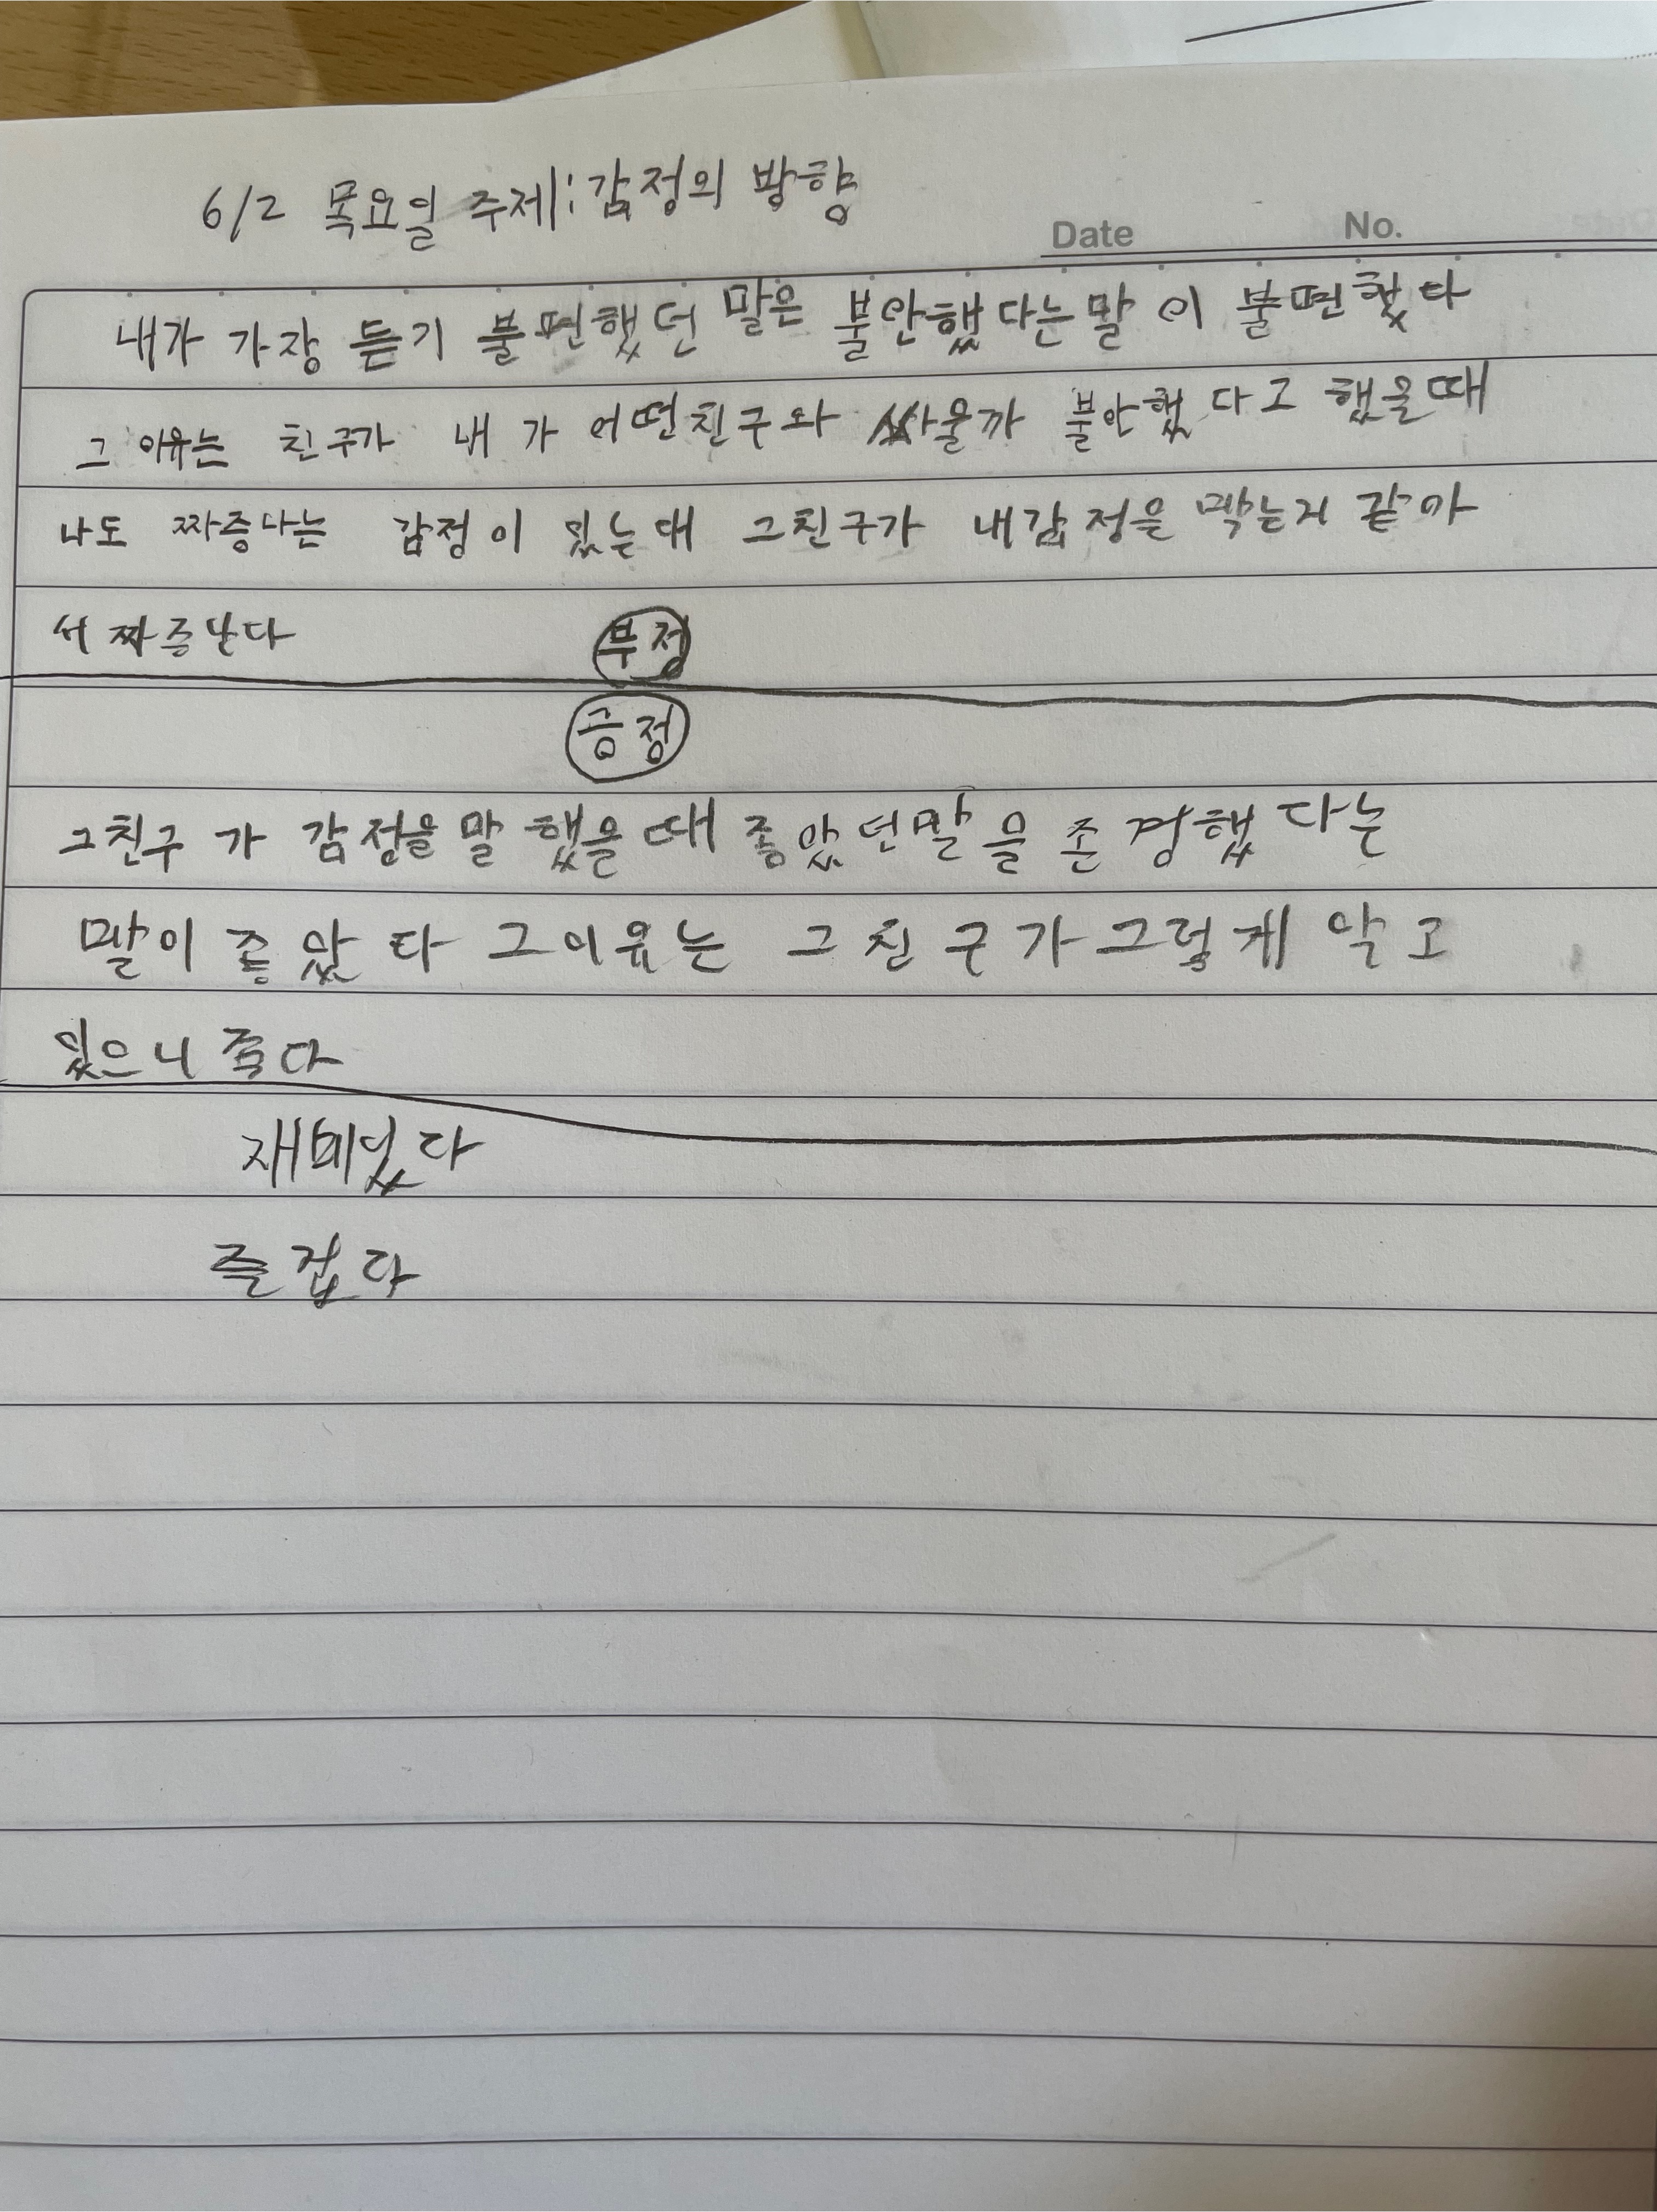 6/2 목요일 주제: 감정의 방향
Date No.
내가 가장 듣기 불편했던 말은 불안했다는말 이 불편했다
그 이유는 친구가 내가 어떤친구와 싸울까 불안했다고 했을때
나도 짜증나는 감정이 있는대 그친구가 내감정을 막는거 같아
서 짜증난다
부정
긍정
그친구가 감정을 말했을때 좋았던말을 존경했다는
말이 좋았다 그이유는 그친구가 그렇게 악고
있으니 좋다
재미있다
즐겁다